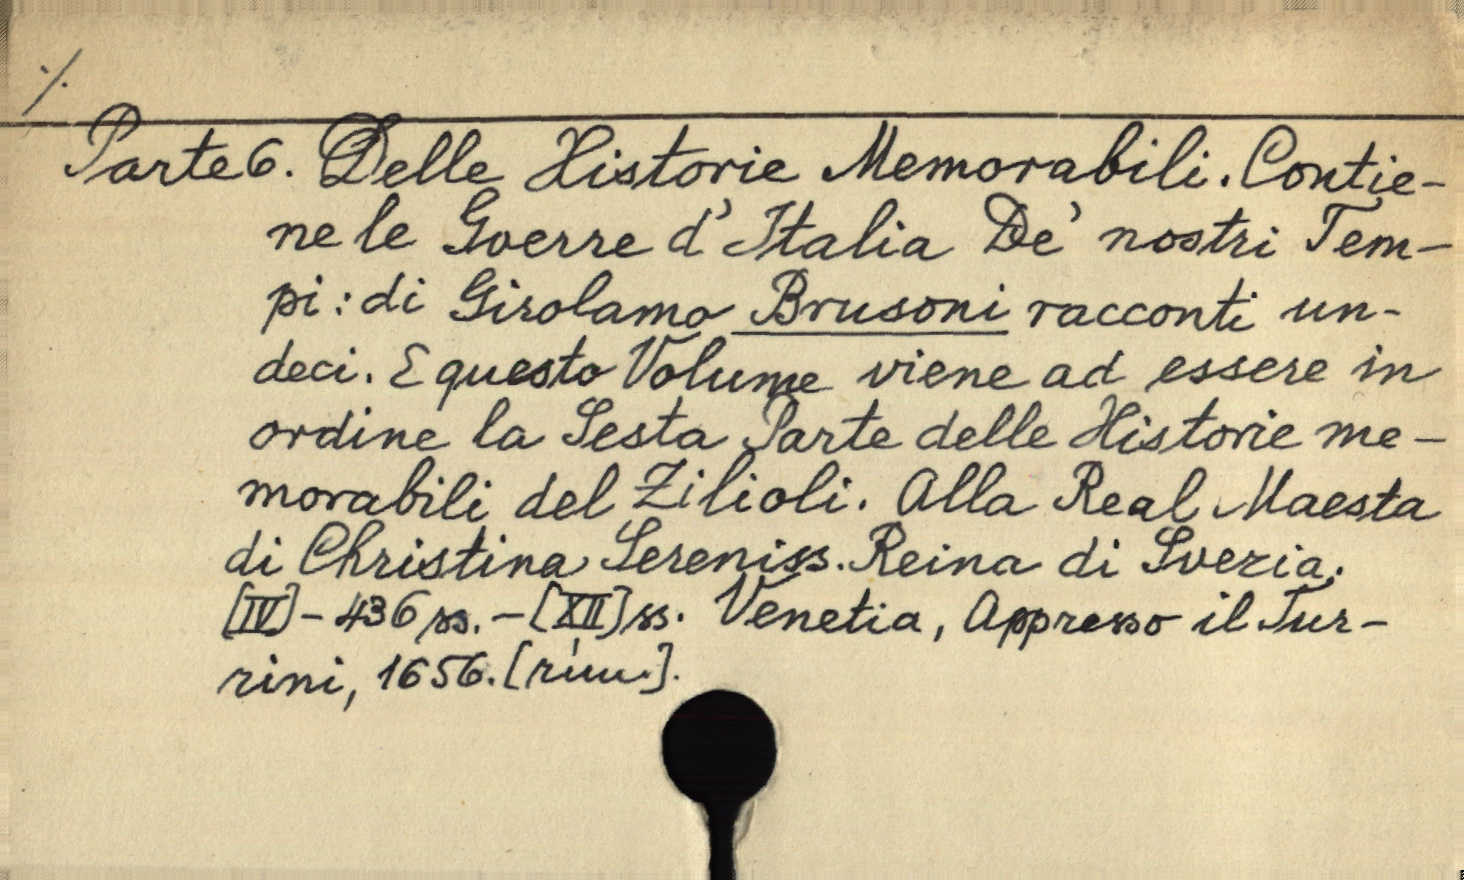 ./.
Parte 6. Delle Historie Memorabili. Contie-
ne le Gverre d'Italia De' nostri Tem-
pi: di Girolamo Brusoni racconti un-
deci. E questo Volume viene ad essere in
ordine la Sesta Parte delle Historie me-
morabili del Zilioli. Alla Real Maesta
di Christina Sereniss. Reina di Svezia.
[IV] - 436 ss. - [XII] ss. Venetia, Appresso il Tur-
rini, 1656.